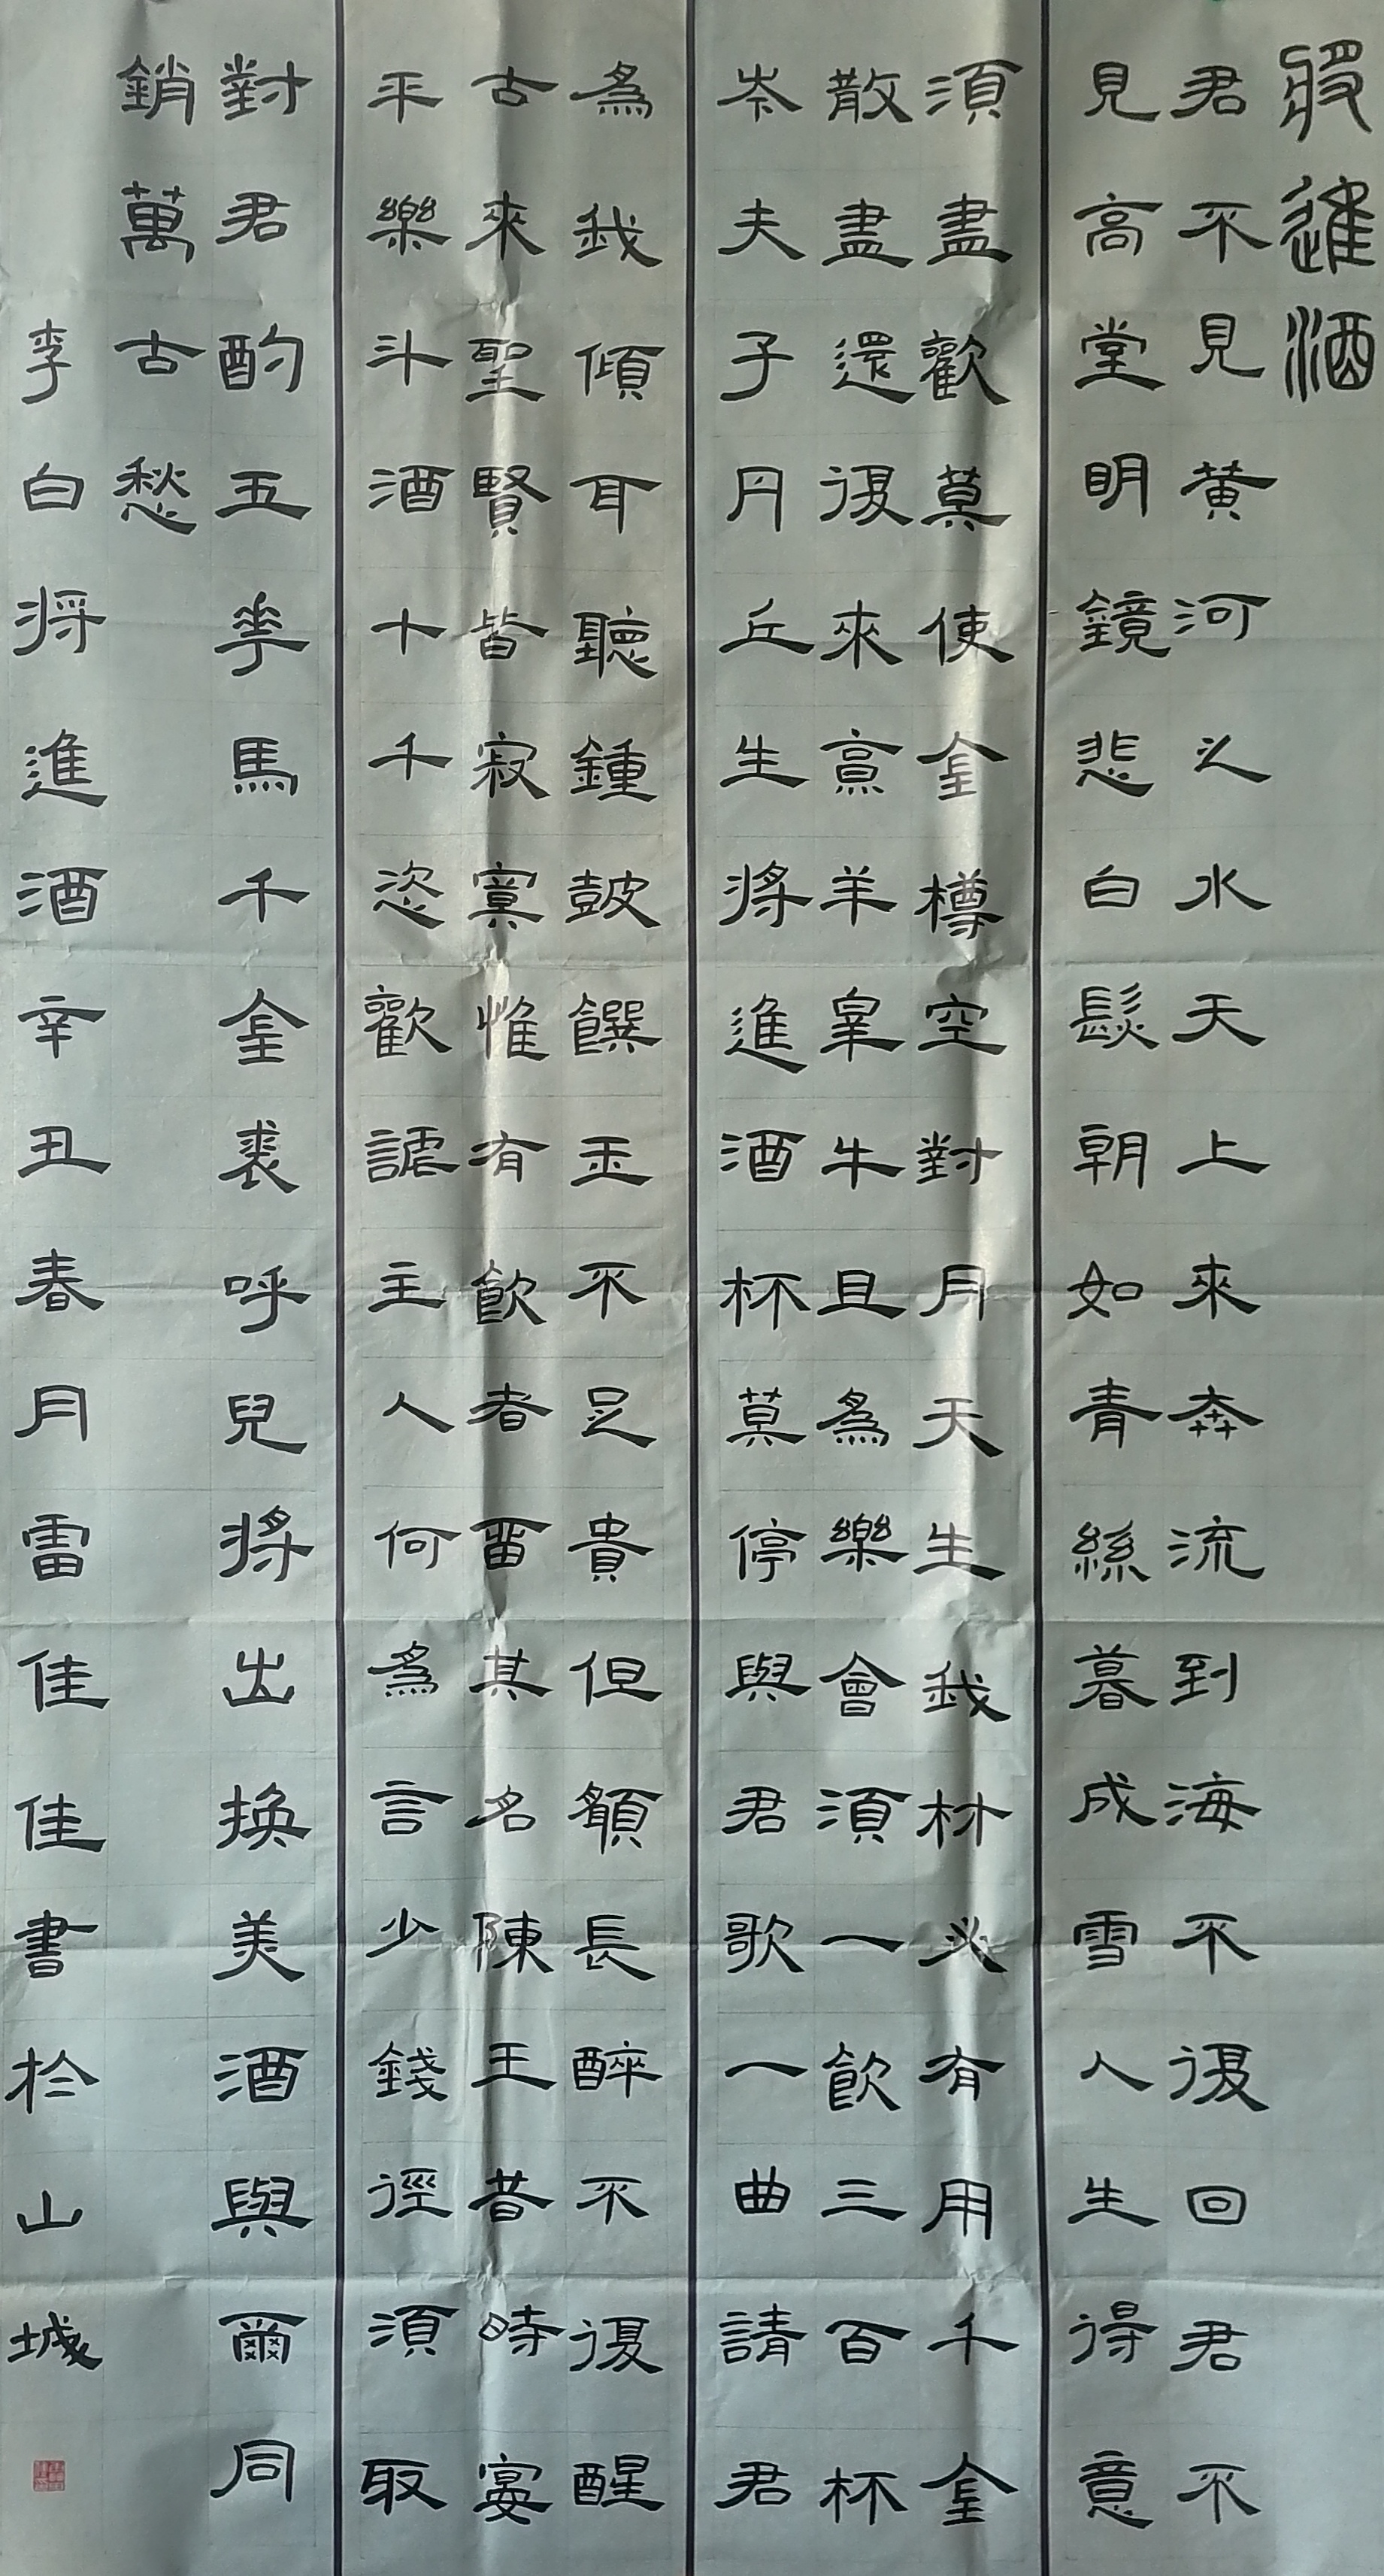 將進酒
君不見黄河之水天上來奔流到海不復回君不
見高堂明鏡悲白髮朝如青絲暮成雪人生得意
須盡歡莫使金樽空對月天生我材必有用千金
散盡還復來烹羊宰牛且為樂會須一飲三百杯
岑夫子丹丘生將進酒杯莫停與君歌一曲請君
為我傾耳聽鍾鼓饌玉不足貴但願長醉不復醒
古來聖賢皆寂寞惟有飲者留其名陳王昔時宴
平樂斗酒十千恣歡謔主人何為言少錢徑須取
對君酌五花馬千金裘呼兒將出換美酒與爾同
銷萬古愁
李白将進酒辛丑春月雷佳佳書於山城